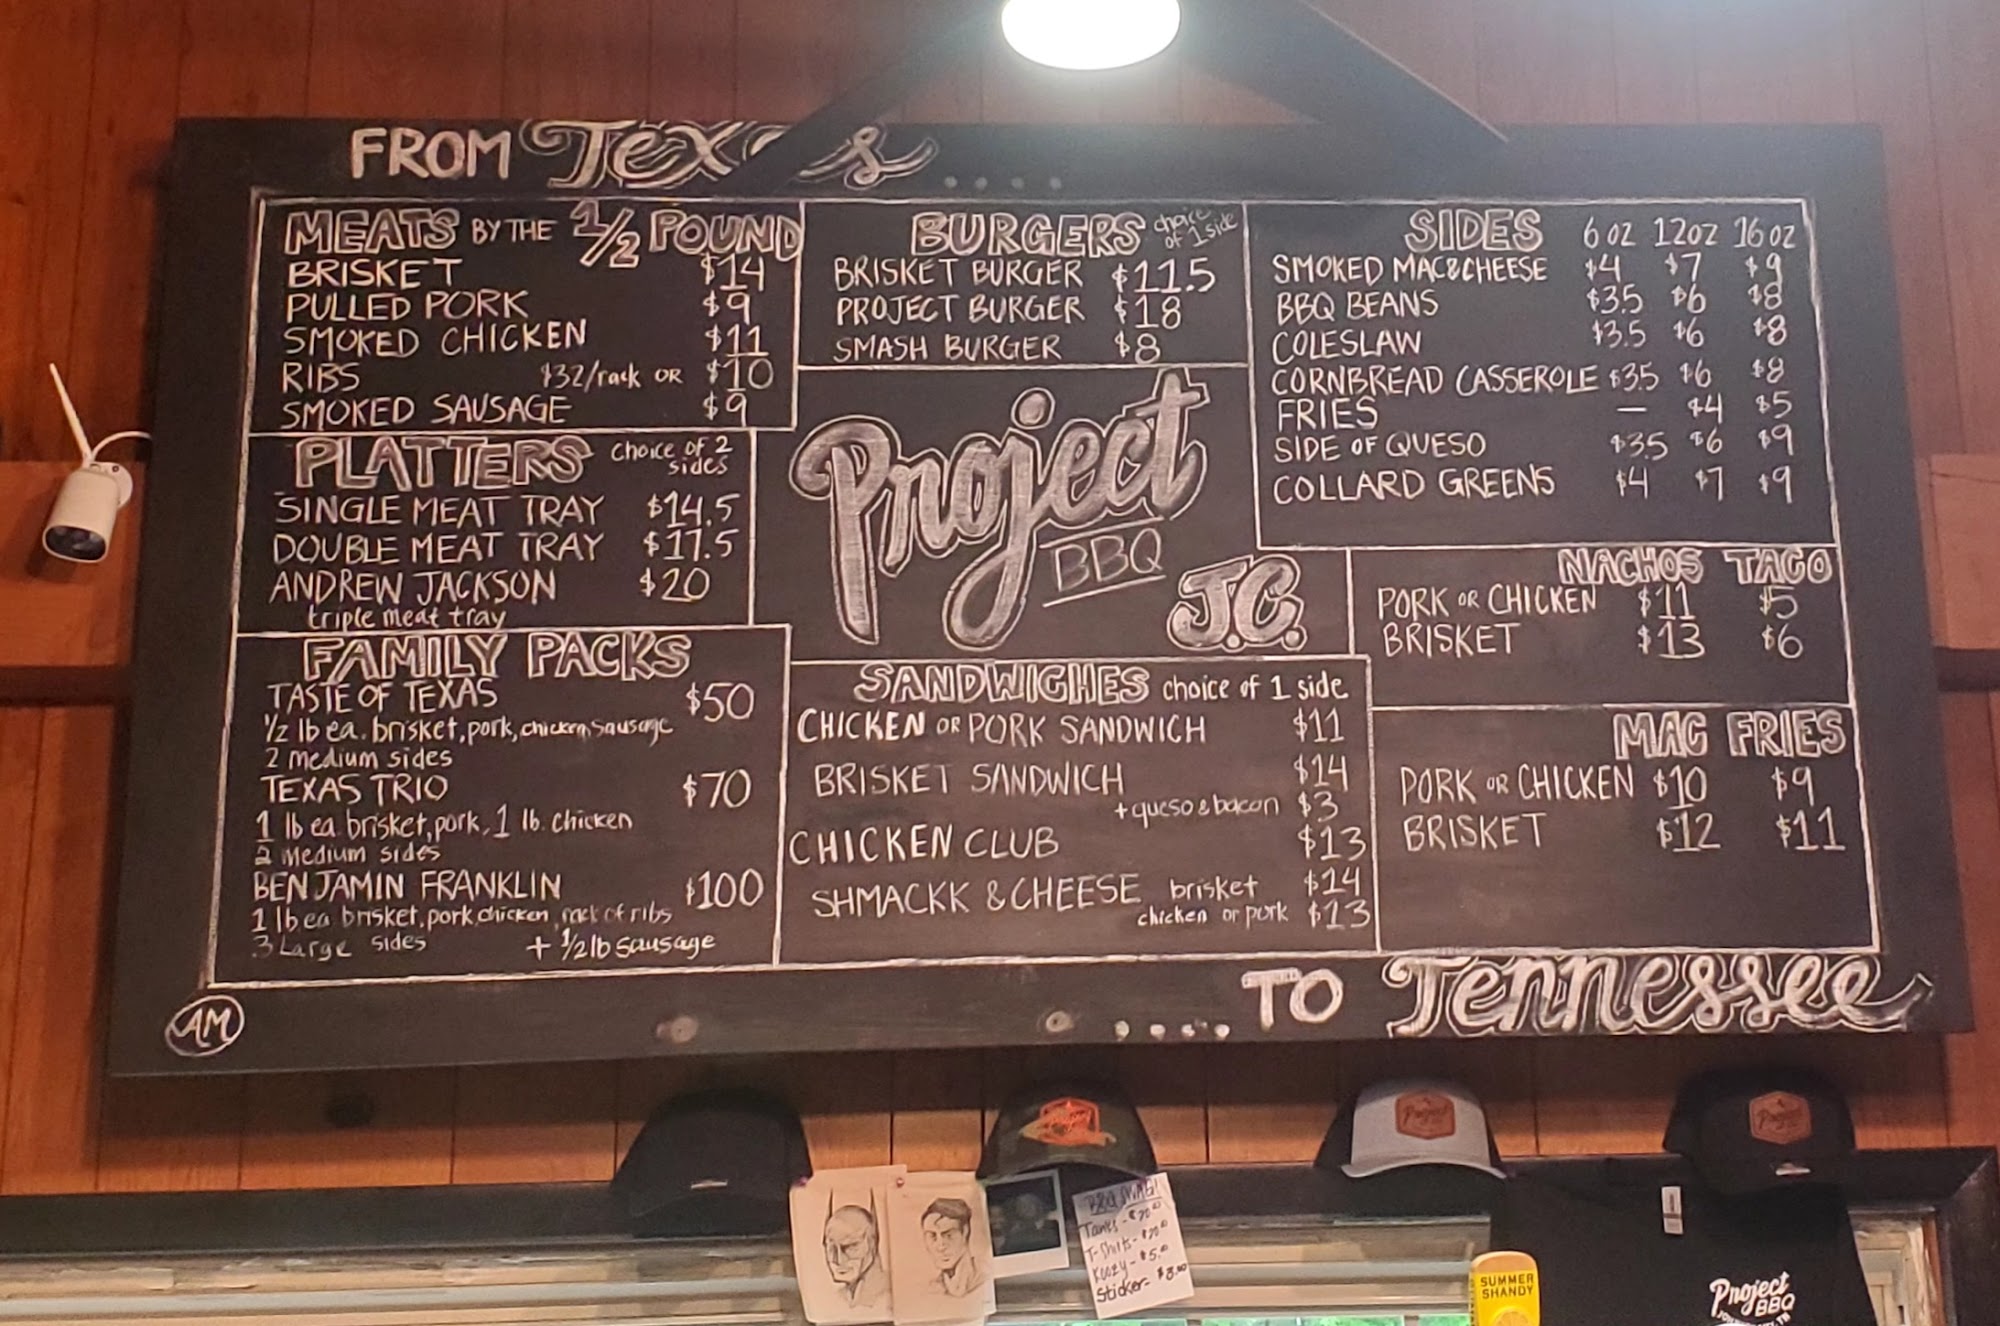 FROM Texas ....
MEATS BY THE 1/2 POUND
BRISKET $14
PULLED PORK $9
SMOKED CHICKEN $11
RIBS $32/rack OR $10
SMOKED SAUSAGE $9
PLATTERS choice of 2 sides
SINGLE MEAT TRAY $14.5
DOUBLE MEAT TRAY $17.5
ANDREW JACKSON $20
triple meat tray
FAMILY PACKS
TASTE OF TEXAS $50
1/2 lb ea. brisket, pork, chicken, sausage
2 medium sides
TEXAS TRIO $70
1 lb ea. brisket, pork, 1 lb. chicken
2 Medium sides
BENJAMIN FRANKLIN $100
1 lb ea brisket, pork, chicken, rack of ribs
3 Large sides + 1/2 lb sausage
BURGERS choice of 1 side
BRISKET BURGER $11.5
PROJECT BURGER $18
SMASH BURGER $8
Project
BBQ
J.C.
SANDWICHES choice of 1 side
CHICKEN OR PORK SANDWICH $11
BRISKET SANDWICH $14
+ queso & bacon $3
CHICKEN CLUB $13
SHMACKK & CHEESE brisket $14
chicken or pork $13
SIDES 6 oz 12 oz 16 oz
SMOKED MAC&CHEESE $4 $7 $9
BBQ BEANS $3.5 $6 $8
COLESLAW $3.5 $6 $8
CORNBREAD CASSEROLE $3.5 $6 $8
FRIES — $4 $5
SIDE OF QUESO $3.5 $6 $9
COLLARD GREENS $4 $7 $9
NACHOS TACO
PORK OR CHICKEN $11 $5
BRISKET $13 $6
MAC FRIES
PORK OR CHICKEN $10 $9
BRISKET $12 $11
AM
.... TO Tennessee
BBQ SWAG!
Tanks - $20.00
T-Shirts - $20.00
Koozy - $5.00
Sticker - $3.00
Project
Project
SUMMER
SHANDY
Project
BBQ